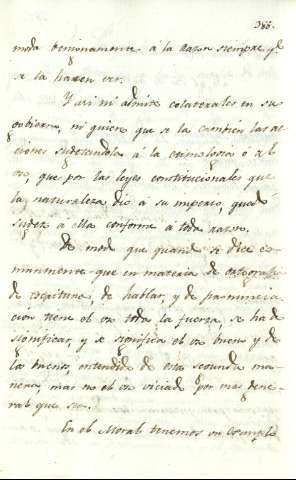 388.
moda benignamente á la razon siempre q.e
se la hazen ver.
Y asi ni admite colaterales en su
gobierno, ni quiere que se la cambien las ac
ciones sugetandola á la etimologia ó al
uso, que por las leyes constitucionales que
la naturaleza dió á su imperio, quedó
sugeto á ella conforme á toda razon.
De modo que quando se dice co-
munmente que en materia de ortografia
de escritura, de hablar, y de pronuncia
cion tiene el uso toda la fuerza, se ha de
significar, y se significa el uso bueno y de
los buenos, entendido de esta segunda ma
nera, mas no el uso viciado por mas gene
ral que sea.
En el Moral tenemos un exemplo